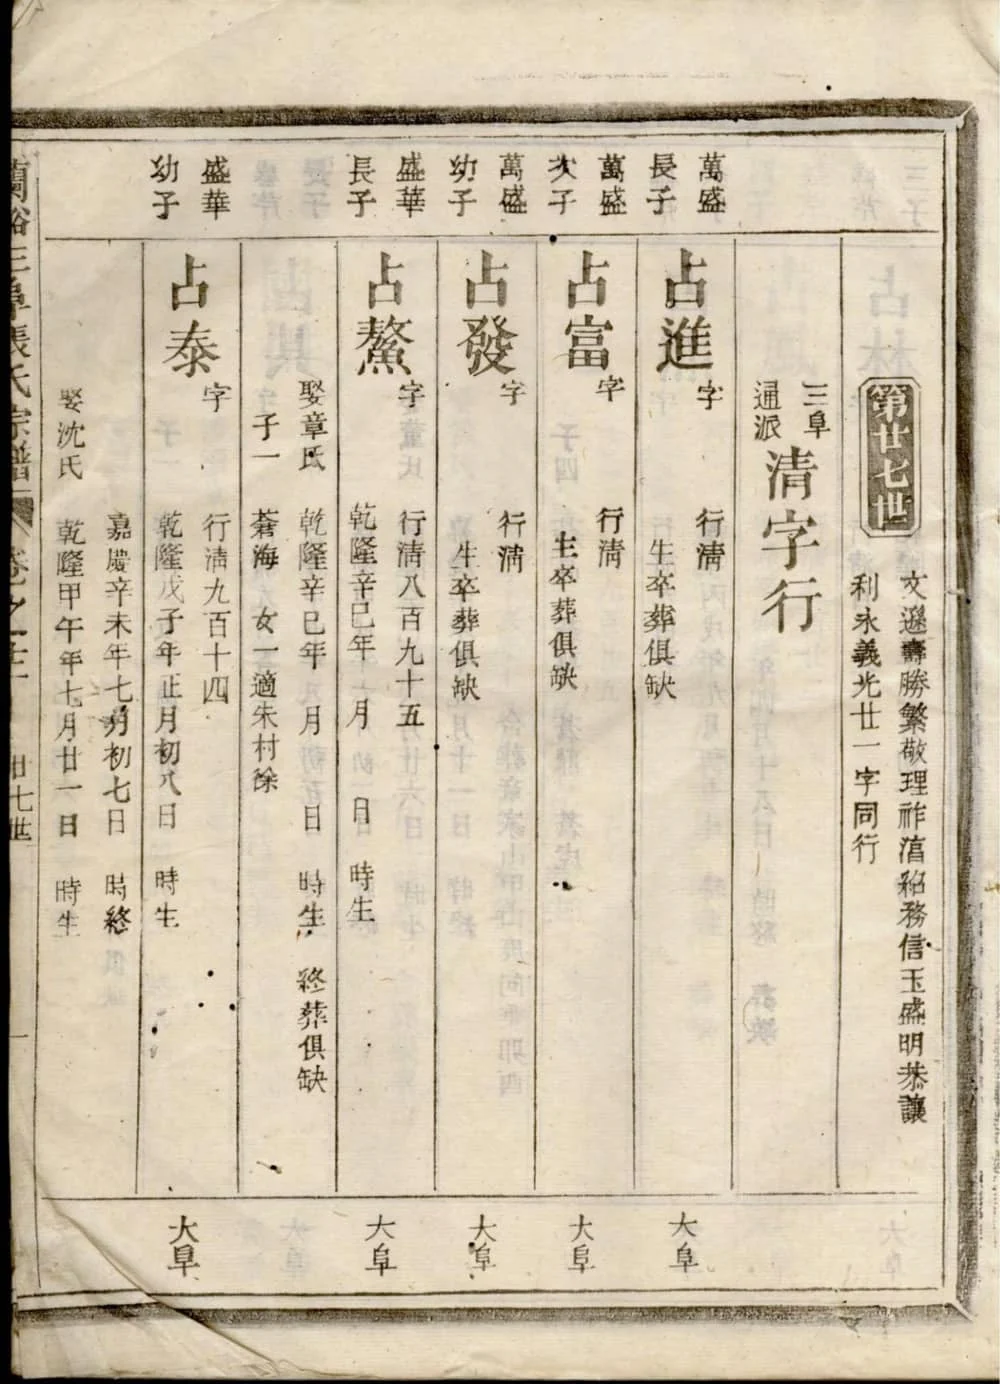 第廿七世
文遜壽勝繁敬理祚滀紹務信玉盛明恭讓
利永義光廿一字同行
三阜
通派
清字行
萬盛
長子
占進
字
行清
生卒葬俱缺
大阜
萬盛
次子
占富
字
行清
生卒葬俱缺
大阜
萬盛
幼子
占發
字
行清
生卒葬俱缺
大阜
盛華
長子
占鰲
字
行清八百九十五
乾隆辛巳年 月 日 時生
大阜
娶章氏
乾隆辛巳年 月 日 時生 終葬俱缺
子一
蒼海 女一適朱村徐
盛華
幼子
占泰
字
行清九百十四
乾隆戊子年正月初八日 時生
大阜
嘉慶辛未年七月初七日 時終
娶沈氏
乾隆甲午年七月廿一日 時生
三阜張氏宗譜
卷之
廿七世
一